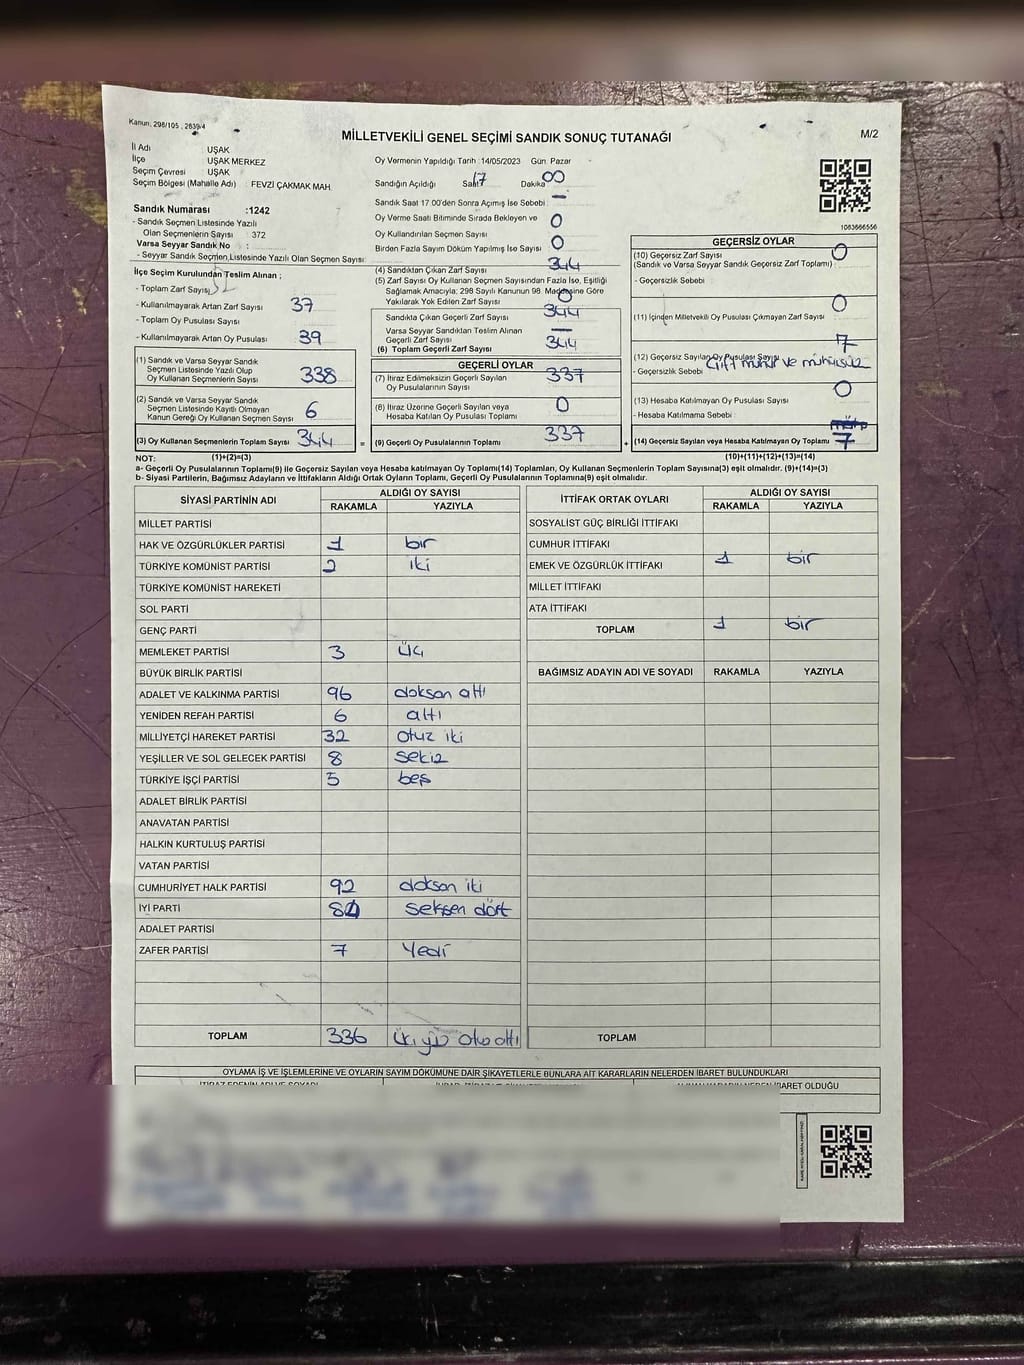 Kanun; 298/105 , 2839/4
MİLLETVEKİLİ GENEL SEÇİMİ SANDIK SONUÇ TUTANAĞI
M/2
İl Adı UŞAK
İlçe UŞAK MERKEZ
Seçim Çevresi UŞAK
Seçim Bölgesi (Mahalle Adı) : FEVZİ ÇAKMAK MAH.
Oy Vermenin Yapıldığı Tarih : 14/05/2023 Gün: Pazar
Sandığın Açıldığı Saat 17 Dakika 00
Sandık Saat 17:00'den Sonra Açımış İse Sebebi : —
Oy Verme Saati Bitiminde Sırada Bekleyen ve
Oy Kullandırılan Seçmen Sayısı 0
Birden Fazla Sayım Döküm Yapılmış İse Sayısı 0
1083666556
Sandık Numarası :1242
- Sandık Seçmen Listesinde Yazılı
Olan Seçmenlerin Sayısı : 372
Varsa Seyyar Sandık No :
- Seyyar Sandık Seçmen Listesinde Yazılı Olan Seçmen Sayısı:
İlçe Seçim Kurulundan Teslim Alınan ;
- Toplam Zarf Sayısı
- Kullanılmayarak Artan Zarf Sayısı 37
- Toplam Oy Pusulası Sayısı
- Kullanılmayarak Artan Oy Pusulası 39
(1) Sandık ve Varsa Seyyar Sandık
Seçmen Listesinde Yazılı Olup
Oy Kullanan Seçmenlerin Sayısı 338
(2) Sandık ve Varsa Seyyar Sandık
Seçmen Listesinde Kayıtlı Olmayan
Kanun Gereği Oy Kullanan Seçmen Sayısı 6
(3) Oy Kullanan Seçmenlerin Toplam Sayısı 344 =
(4) Sandıktan Çıkan Zarf Sayısı 344
(5) Zarf Sayısı Oy Kullanan Seçmen Sayısından Fazla İse, Eşitliği
Sağlamak Amacıyla; 298 Sayılı Kanunun 98. Maddesine Göre
Yakılarak Yok Edilen Zarf Sayısı 0
Sandıkta Çıkan Geçerli Zarf Sayısı 344
Varsa Seyyar Sandıktan Teslim Alınan
Geçerli Zarf Sayısı —
(6) Toplam Geçerli Zarf Sayısı 344
GEÇERLİ OYLAR
(7) İtiraz Edilmeksizin Geçerli Sayılan
Oy Pusulalarının Sayısı 337
(8) İtiraz Üzerine Geçerli Sayılan veya
Hesaba Katılan Oy Pusulası Toplamı 0
(9) Geçerli Oy Pusulalarının Toplamı 337 +
GEÇERSİZ OYLAR
(10) Geçersiz Zarf Sayısı 0
(Sandık ve Varsa Seyyar Sandık Geçersiz Zarf Toplamı)
- Geçersizlik Sebebi :
(11) İçinden Milletvekili Oy Pusulası Çıkmayan Zarf Sayısı 0
(12) Geçersiz Sayılan Oy Pusulası Sayısı 7
- Geçersizlik Sebebi Çift mühür ve mühürsüz
(13) Hesaba Katılmayan Oy Pusulası Sayısı 0
- Hesaba Katılmama Sebebi :
(14) Geçersiz Sayılan veya Hesaba Katılmayan Oy Toplamı 7
NOT: (1)+(2)=(3) (10)+(11)+(12)+(13)=(14)
a- Geçerli Oy Pusulalarının Toplamı(9) ile Geçersiz Sayılan veya Hesaba katılmayan Oy Toplamı(14) Toplamları, Oy Kullanan Seçmenlerin Toplam Sayısına(3) eşit olmalıdır. (9)+(14)=(3)
b- Siyasi Partilerin, Bağımsız Adayların ve İttifakların Aldığı Ortak Oyların Toplamı, Geçerli Oy Pusulalarının Toplamına(9) eşit olmalıdır.
SİYASİ PARTİNİN ADI ALDIĞI OY SAYISI
RAKAMLA YAZIYLA
MİLLET PARTİSİ
HAK VE ÖZGÜRLÜKLER PARTİSİ 1 bir
TÜRKİYE KOMÜNİST PARTİSİ 2 iki
TÜRKİYE KOMÜNİST HAREKETİ
SOL PARTİ
GENÇ PARTİ
MEMLEKET PARTİSİ 3 üç
BÜYÜK BİRLİK PARTİSİ
ADALET VE KALKINMA PARTİSİ 96 doksan altı
YENİDEN REFAH PARTİSİ 6 altı
MİLLİYETÇİ HAREKET PARTİSİ 32 otuz iki
YEŞİLLER VE SOL GELECEK PARTİSİ 8 sekiz
TÜRKİYE İŞÇİ PARTİSİ 5 beş
ADALET BİRLİK PARTİSİ
ANAVATAN PARTİSİ
HALKIN KURTULUŞ PARTİSİ
VATAN PARTİSİ
CUMHURİYET HALK PARTİSİ 92 doksan iki
İYİ PARTİ 84 seksen dört
ADALET PARTİSİ
ZAFER PARTİSİ 7 Yedi
TOPLAM 336 üçyüz otuz altı
İTTİFAK ORTAK OYLARI ALDIĞI OY SAYISI
RAKAMLA YAZIYLA
SOSYALİST GÜÇ BİRLİĞİ İTTİFAKI
CUMHUR İTTİFAKI
EMEK VE ÖZGÜRLÜK İTTİFAKI 1 bir
MİLLET İTTİFAKI
ATA İTTİFAKI
TOPLAM 1 bir
BAĞIMSIZ ADAYIN ADI VE SOYADI RAKAMLA YAZIYLA
TOPLAM
OYLAMA İŞ VE İŞLEMLERİNE VE OYLARIN SAYIM DÖKÜMÜNE DAİR ŞİKAYETLERLE BUNLARA AİT KARARLARIN NELERDEN İBARET BULUNDUKLARI
İBARET OLDUĞU